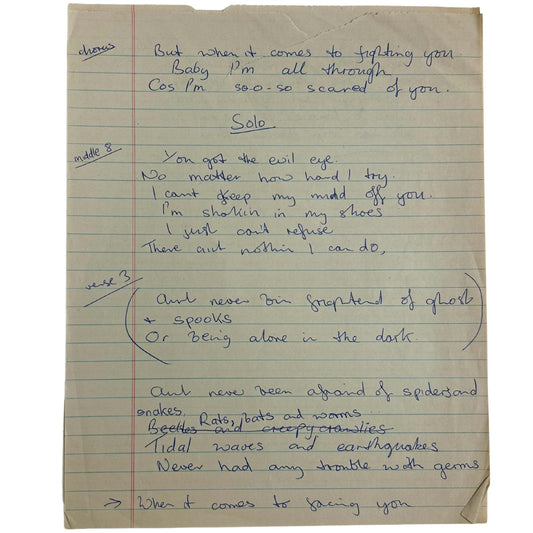 chorus
But when it comes to fighting you
Baby I'm all through
Cos I'm so-o-so scared of you.
Solo
middle 8
You got the evil eye.
No matter how hard I try.
I can't keep my mind off you.
I'm shakin in my shoes
I just can't refuse
There aint nothin I can do,
verse 3
Aint never bin frightend of ghost
+ spooks
Or being alone in the dark.
Aint never been afraid of spiders and
snakes, Rats, bats and worms
Beetles and creepy crawlies
Tidal waves and earthquakes
Never had any trouble with germs
→ When it comes to facing you